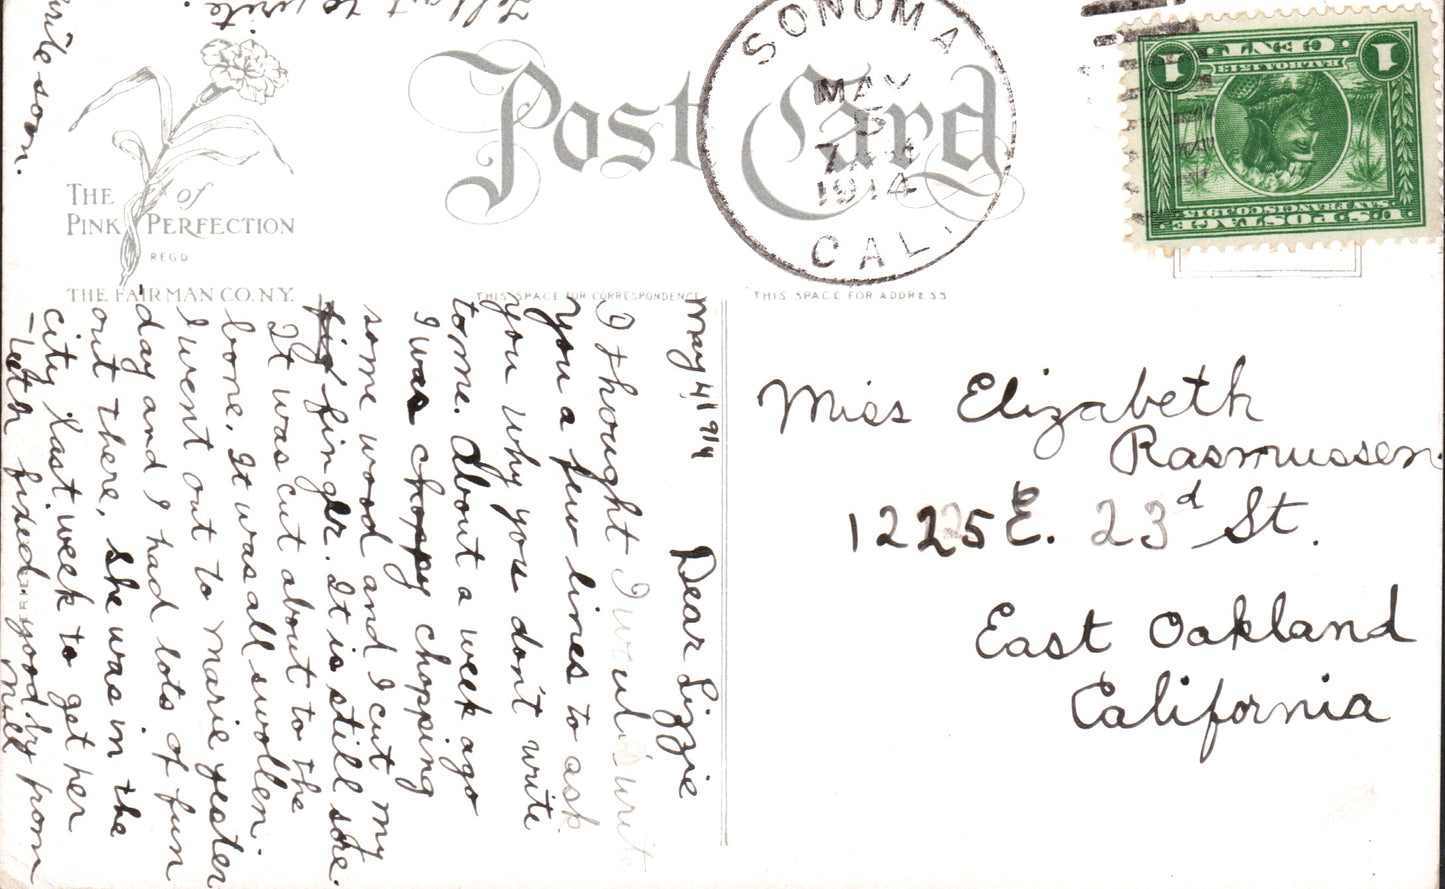 Post Card
THE of
PINK PERFECTION
REGD
THE FAIRMAN CO. N.Y.
THIS SPACE FOR CORRESPONDENCE
THIS SPACE FOR ADDRESS
SONOMA
MAY
5
1914
CAL.
1 CENT 1
BALBOA 1513
SAN FRANCISCO 1915
U.S. POSTAGE
Miss Elizabeth
Rasmussen
1225 E. 23d St.
East Oakland
California
May 4, 1914
Dear Lizzie
I thought I would write
you a few lines to ask
you why you don't write
to me. About a week ago
I was choppy chopping
some wood and I cut my
fig finger. It is still sore.
It was cut about to the
bone. It was all swollen.
I went out to Marie yester
-day and I had lots of fun
out there, she was in the
city last week to get her
fixed good by from
Nell
write soon.
to write.